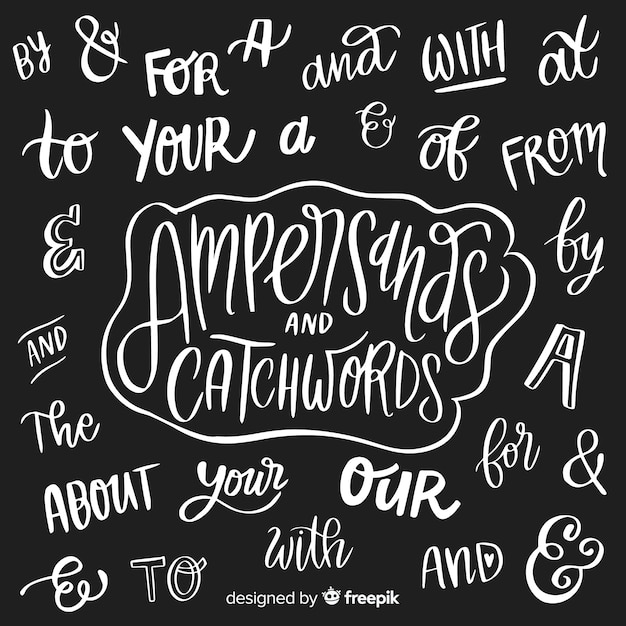 BY & FOR A and WITH at
to YOUR a & & of FROM
& by
AMPERSANDS
AND
CATCHWORDS
AND A
The for &
ABOUT your OUR
& TO with AND &
designed by freepik